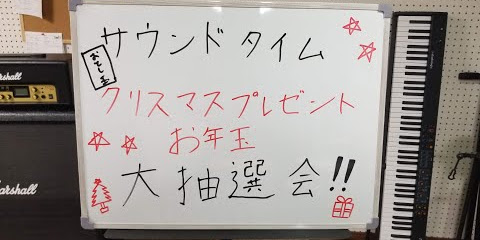 サウンドタイム
おとし玉
クリスマスプレゼント
お年玉
大抽選会!!
Marshall
Marshall